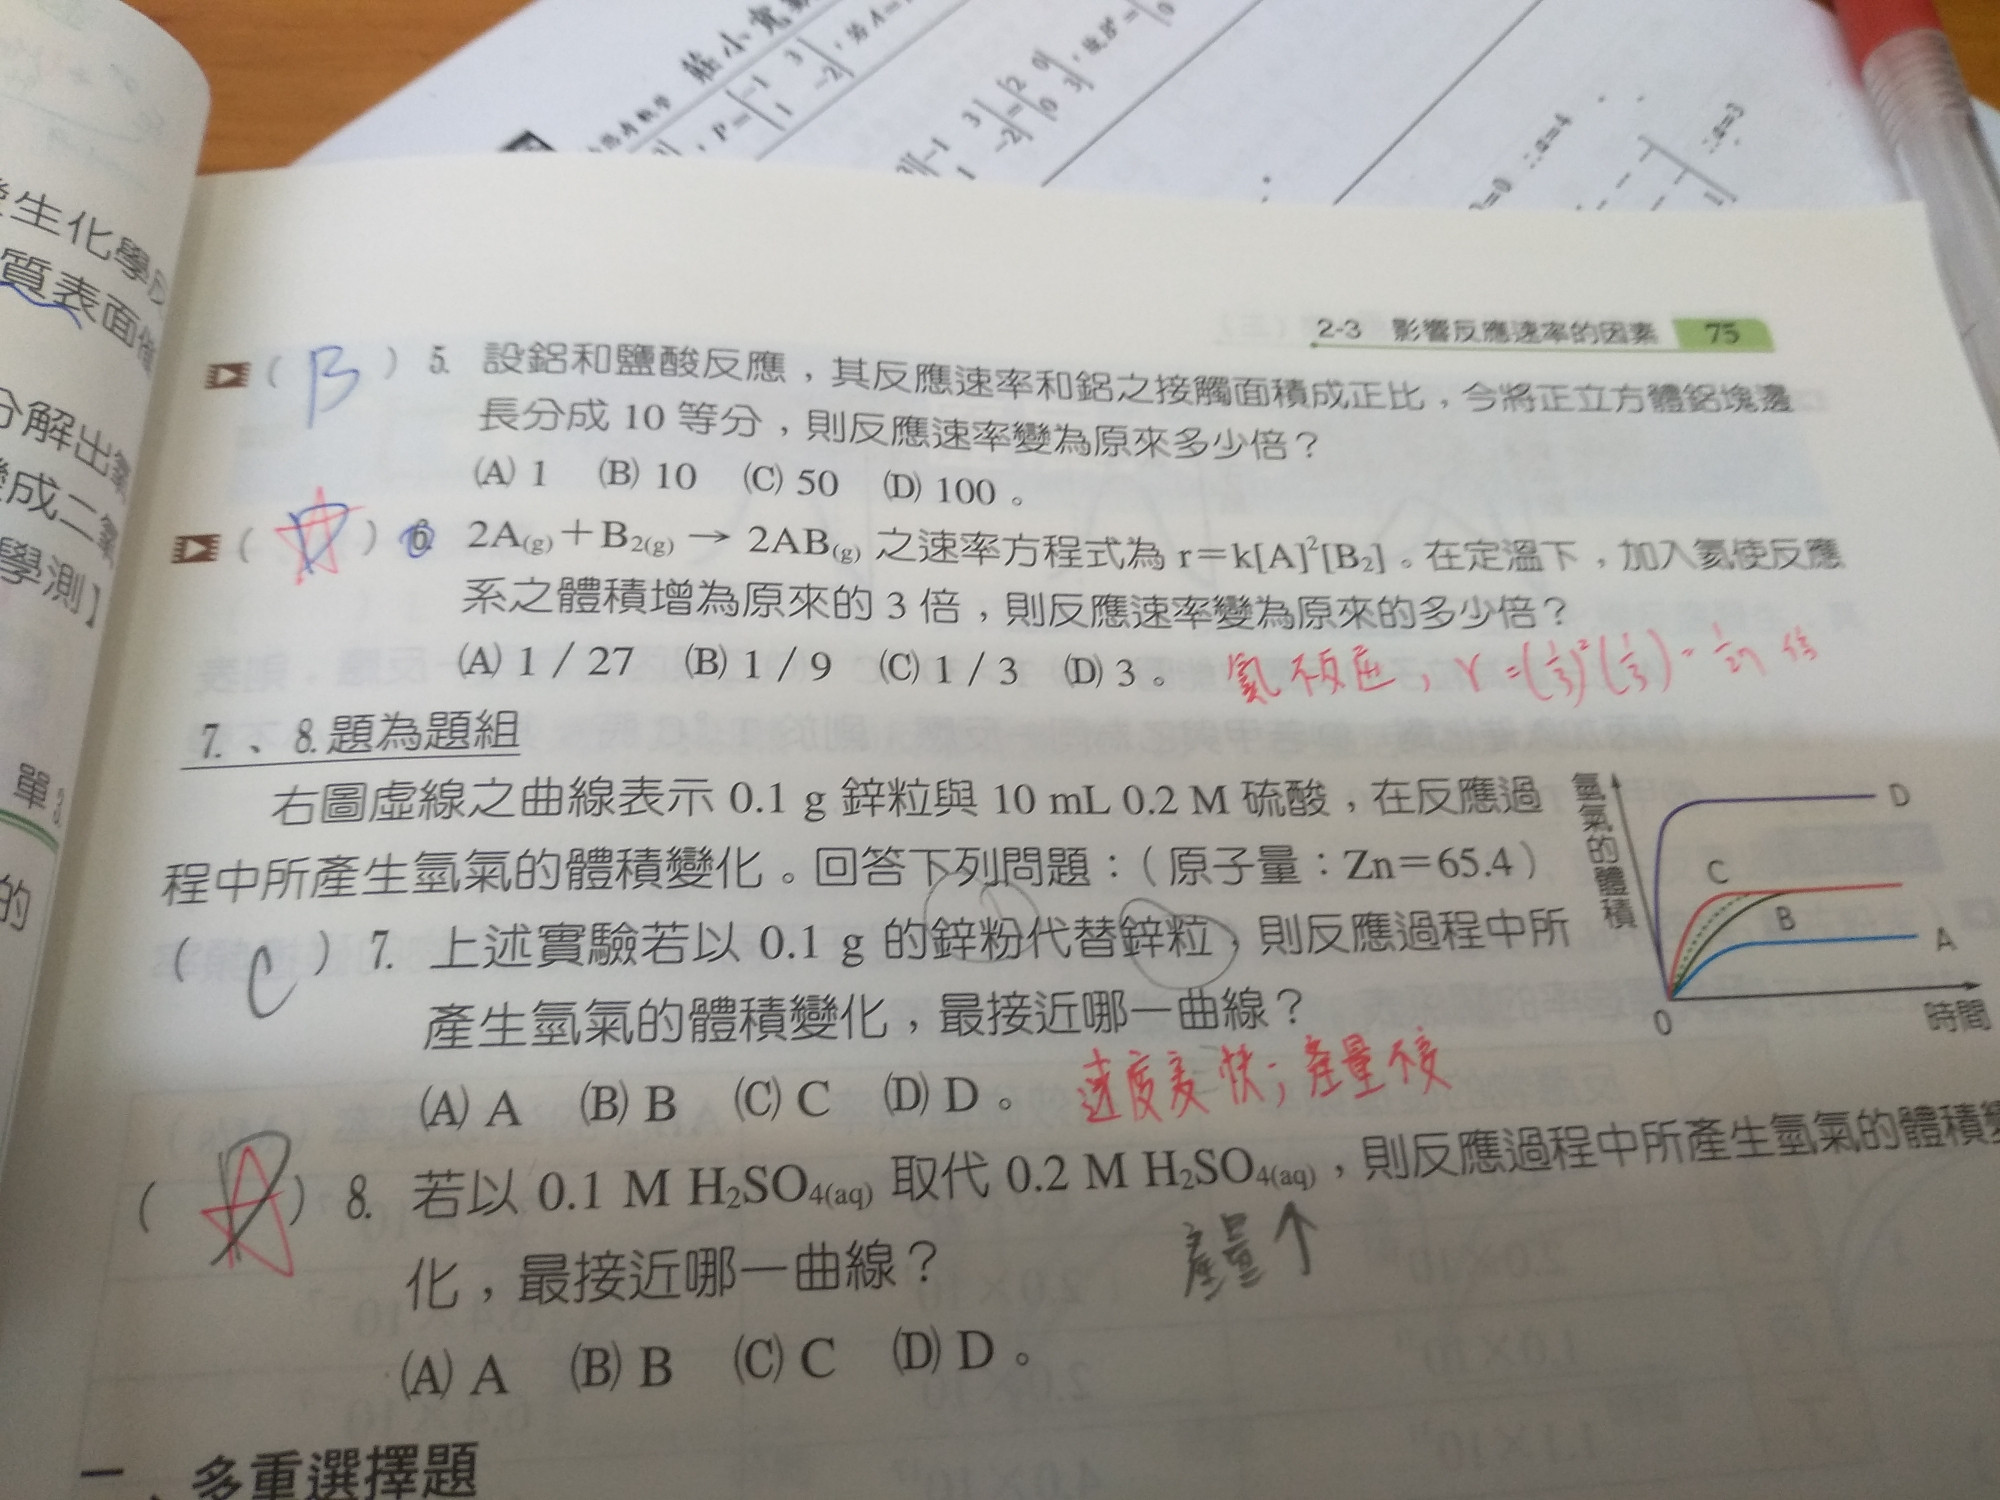 莊小寬
P=|-1 3
1 -2|, 若 A=
3||-1 3
1 -2|=|2 0
0 3|, 故B⁶=
∴a=4
∴a=3
2-3 影響反應速率的因素 75
(B) 5. 設鋁和鹽酸反應，其反應速率和鋁之接觸面積成正比，今將正立方體鋁塊邊
長分成 10 等分，則反應速率變為原來多少倍？
(A) 1 (B) 10 (C) 50 (D) 100。
(A) 6. 2A(g)＋B₂(g) → 2AB(g) 之速率方程式為 r＝k[A]²[B₂]。在定溫下，加入氦使反應
系之體積增為原來的 3 倍，則反應速率變為原來的多少倍？
(A) 1 / 27 (B) 1 / 9 (C) 1 / 3 (D) 3。
氦不反應, r=(1/3)²(1/3)=1/27 倍
7.、8.題為題組
右圖虛線之曲線表示 0.1 g 鋅粒與 10 mL 0.2 M 硫酸，在反應過
程中所產生氫氣的體積變化。回答下列問題：（原子量：Zn＝65.4）
(C) 7. 上述實驗若以 0.1 g 的鋅粉代替鋅粒，則反應過程中所
產生氫氣的體積變化，最接近哪一曲線？
(A) A (B) B (C) C (D) D。
速度變快; 產量不變
氫氣的體積
D
C
B
A
0
時間
(A) 8. 若以 0.1 M H₂SO₄(aq) 取代 0.2 M H₂SO₄(aq)，則反應過程中所產生氫氣的體積變
化，最接近哪一曲線？
產量↑
(A) A (B) B (C) C (D) D。
二、多重選擇題
生化學反
質表面
分解出氧
成二氧
學測】
單
的